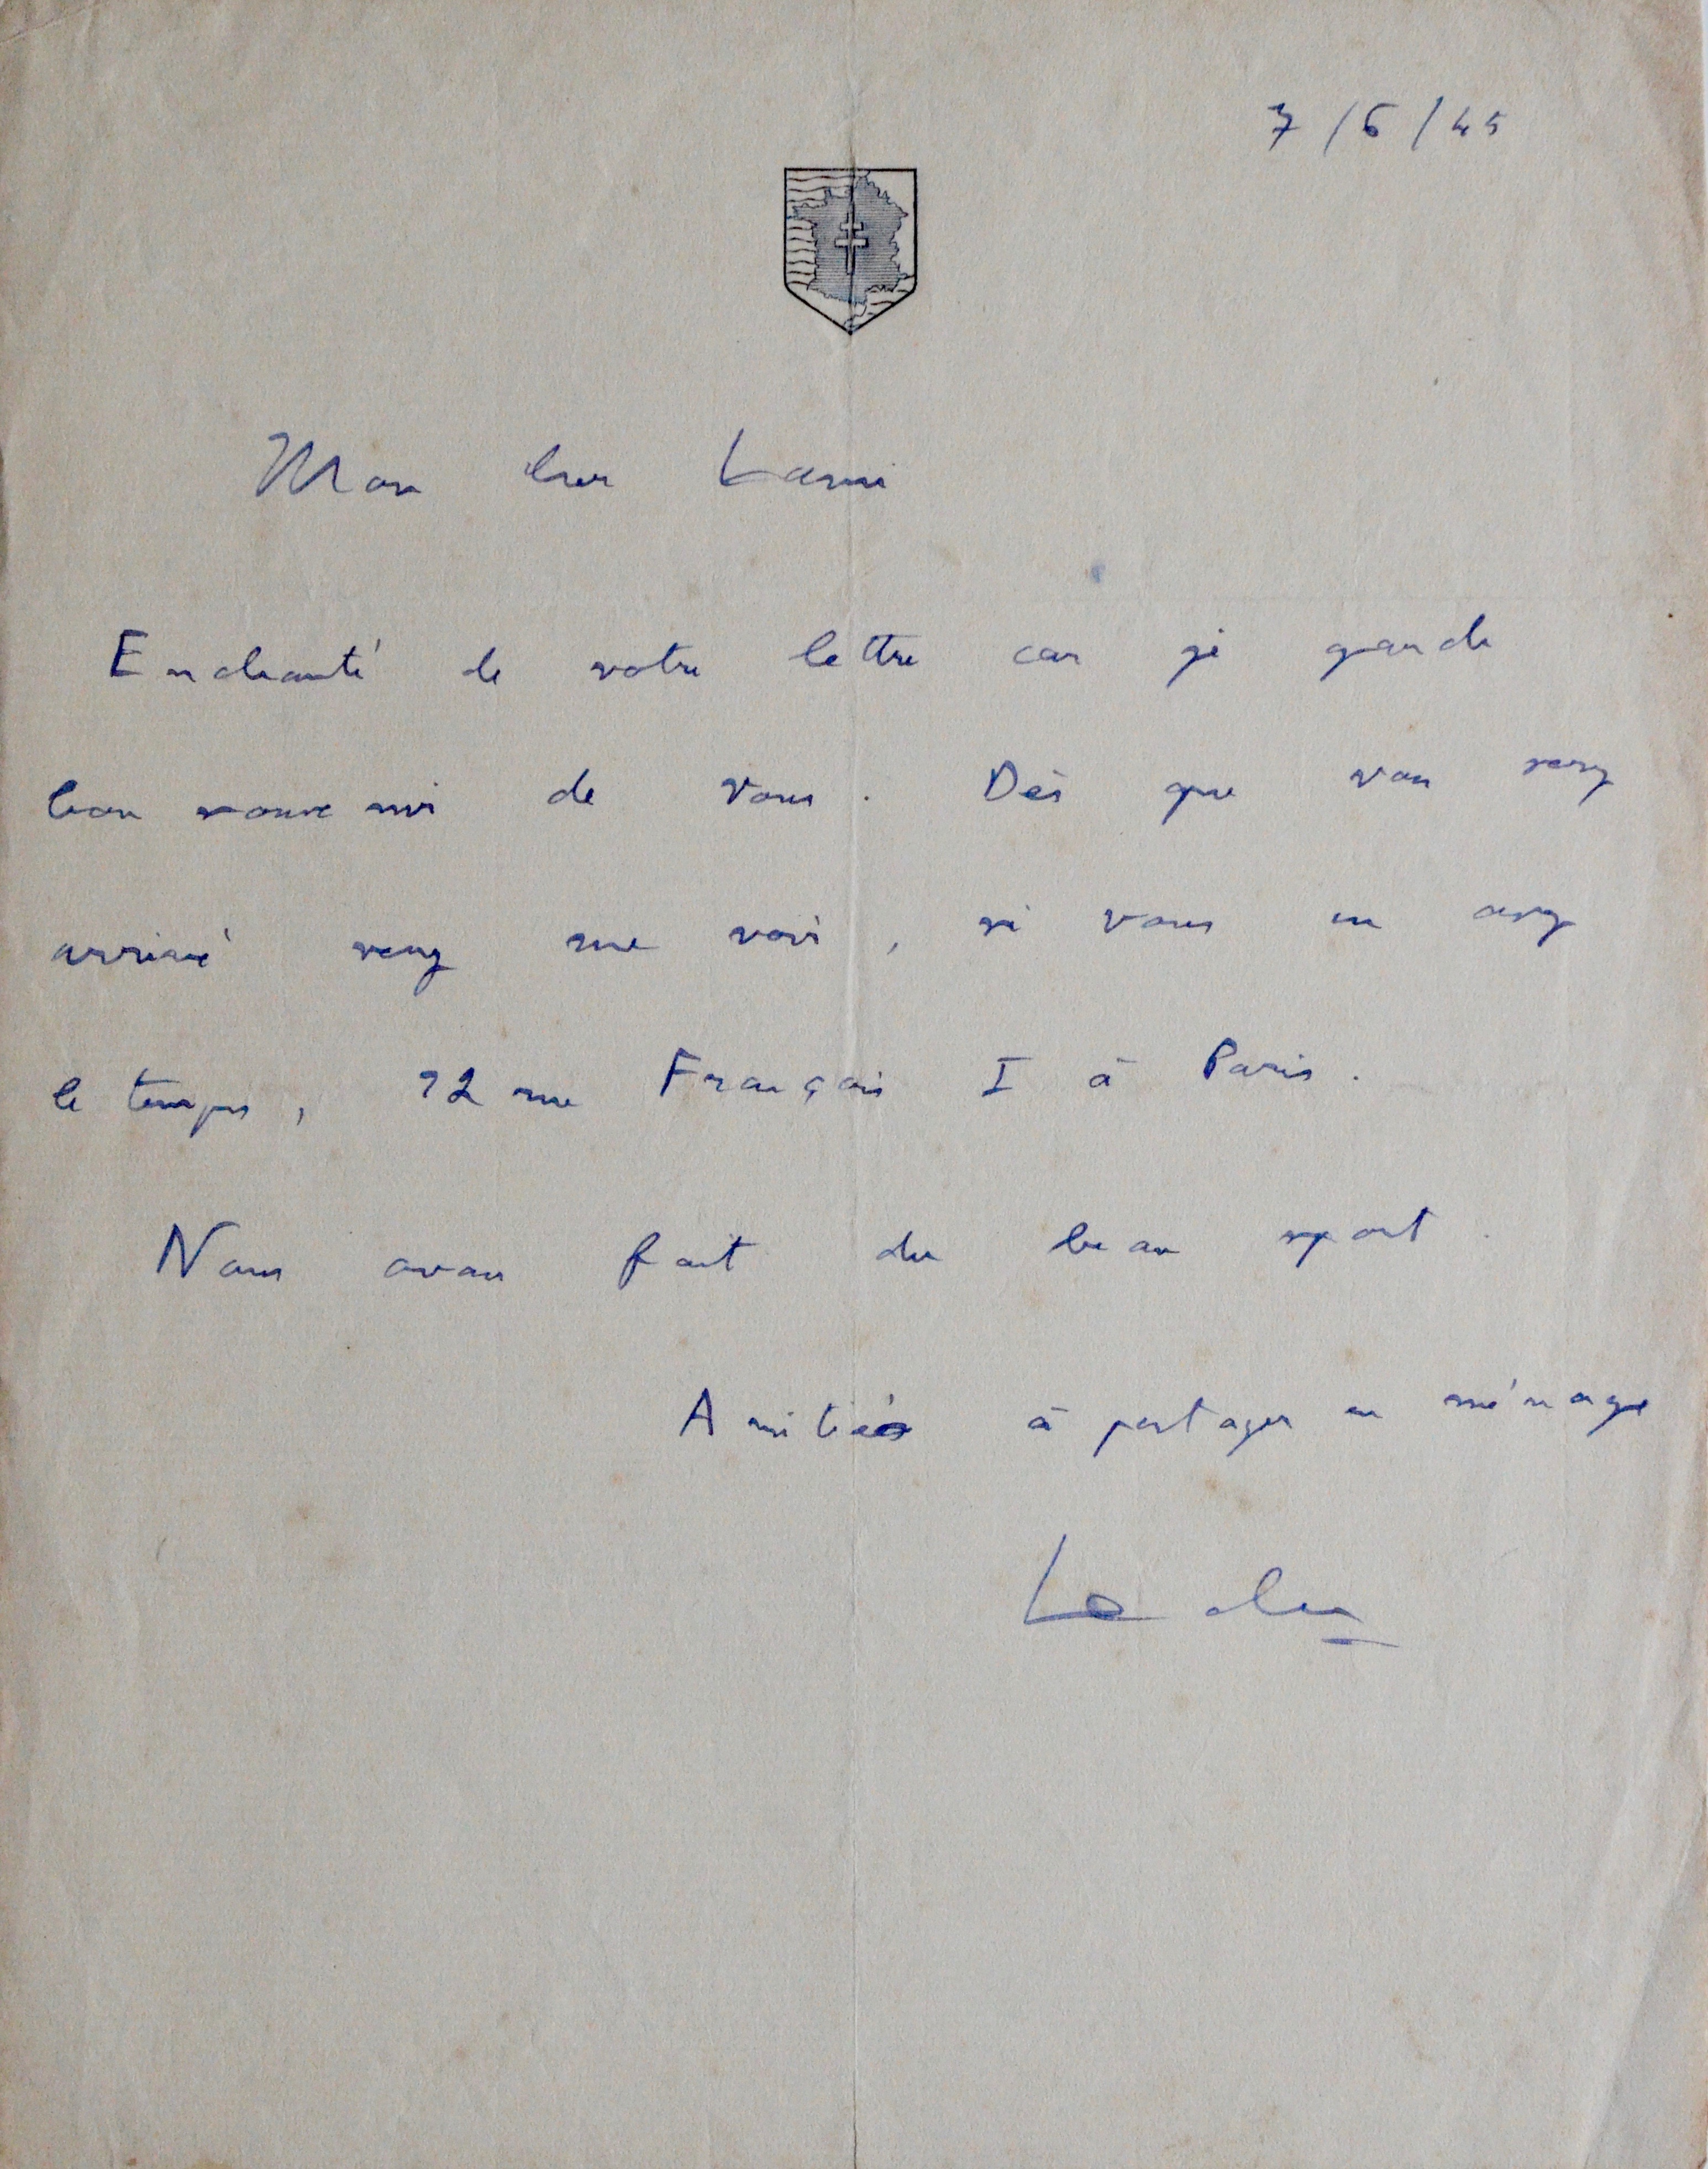 7/6/45
Mon cher Lami
Enchanté de votre lettre car je garde
bon souvenir de vous. Dès que vous serez
arrivé venez me voir, si vous en avez
le temps, 12 rue François I à Paris.
Nous avons fait du beau sport.
Amitiés à partager en ménage